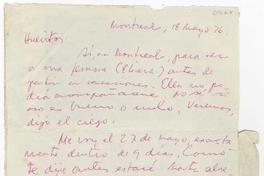 Montreal, 18 Mayo 76
Huevitos
Sí, en Montreal, para ver
a una persona antes de
partir en vacaciones. Ella no po-
día acompañarme. No sé si
eso es bueno o malo, veremos,
dijo el ciego.
Me voy el 27 de mayo, exacta
mente dentro de 9 días. Como
te dije antes estaré hasta